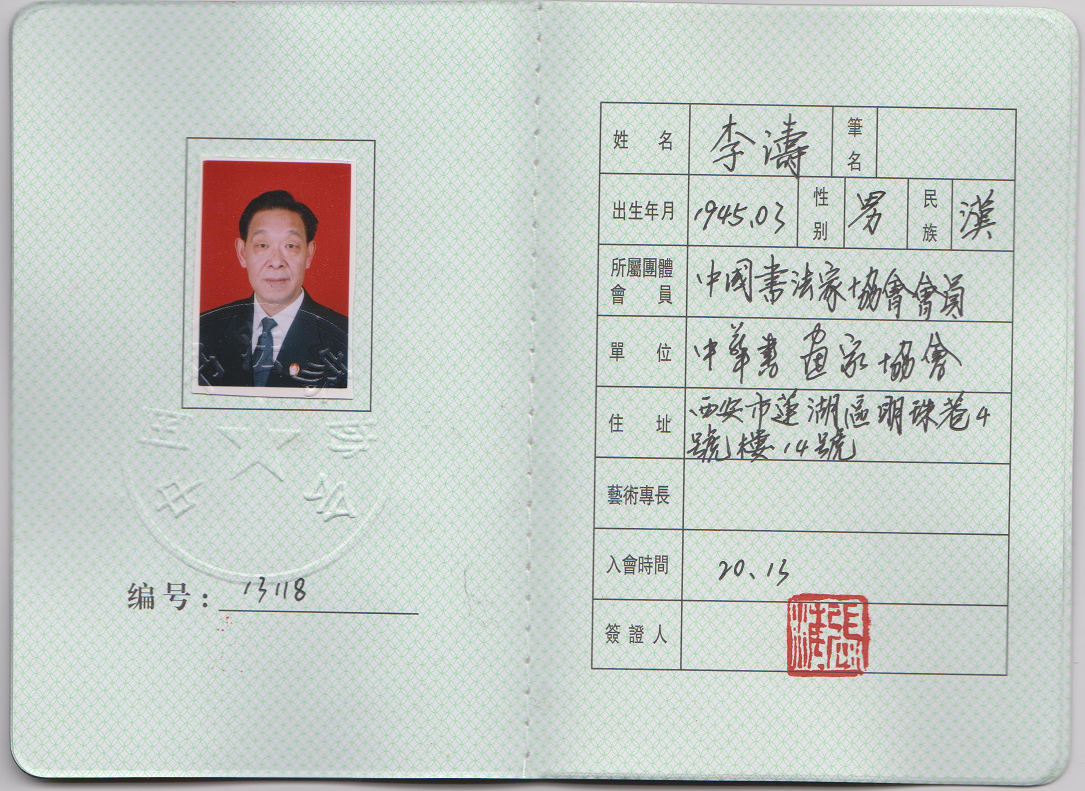 编号：13118
姓名 李濤 筆名
出生年月 1945.03 性别 男 民族 漢
所屬團體會員 中國書法家協會會員
單位 中華書画家協會
住址 西安市蓮湖區明珠巷4
號樓14號
藝術專長
入會時間 20.13
簽證人